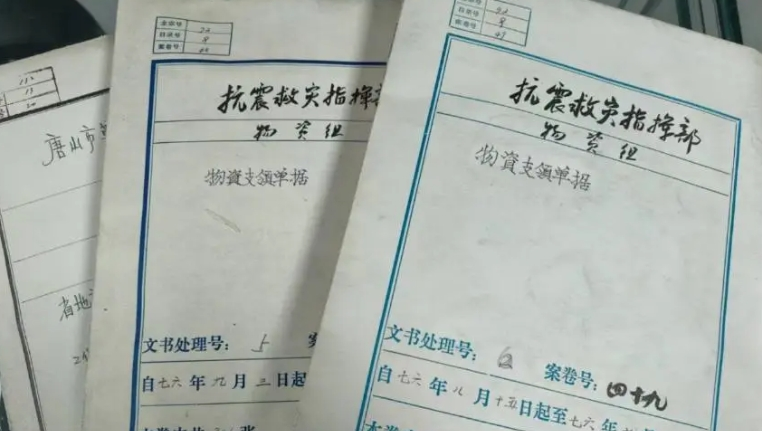 唐山市
省地
全宗号
目录号
案卷号
抗震救灾指挥部
物资组
物資支領单据
文书处理号：5
自七六年九月三日起
全宗号
目录号
案卷号
抗震救灾指挥部
物资组
物資支領单据
文书处理号：6 案卷号：四十九
自七六年八月十五日起至七六年